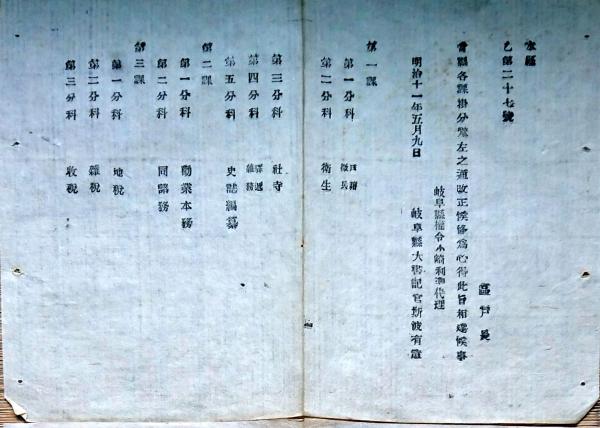 本縣
乙第二十七號
區戸長
當縣各課掛分課左之通改正候條爲心得此旨相達候事
岐阜縣權令小崎利凖代理
明治十一年五月九日 岐阜縣大書記官
第一課
第一分科 戸籍 徴兵
第二分科 衛生
第三分科 社寺
第四分科 驛逓 雑務
第五分科 史誌編纂
第二課
第一分科 勸業本務
第二分科 同
第三課
第一分科 地税
第二分科 雜税
第三分科 收税